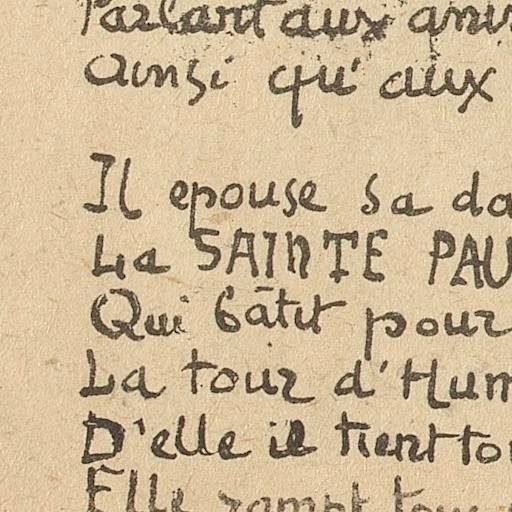 Parlant aux
Ainsi qu'aux
Il epouse sa
La SAINTE
Qui bâtit pour
La tour
D'elle il tient
Elle rompt